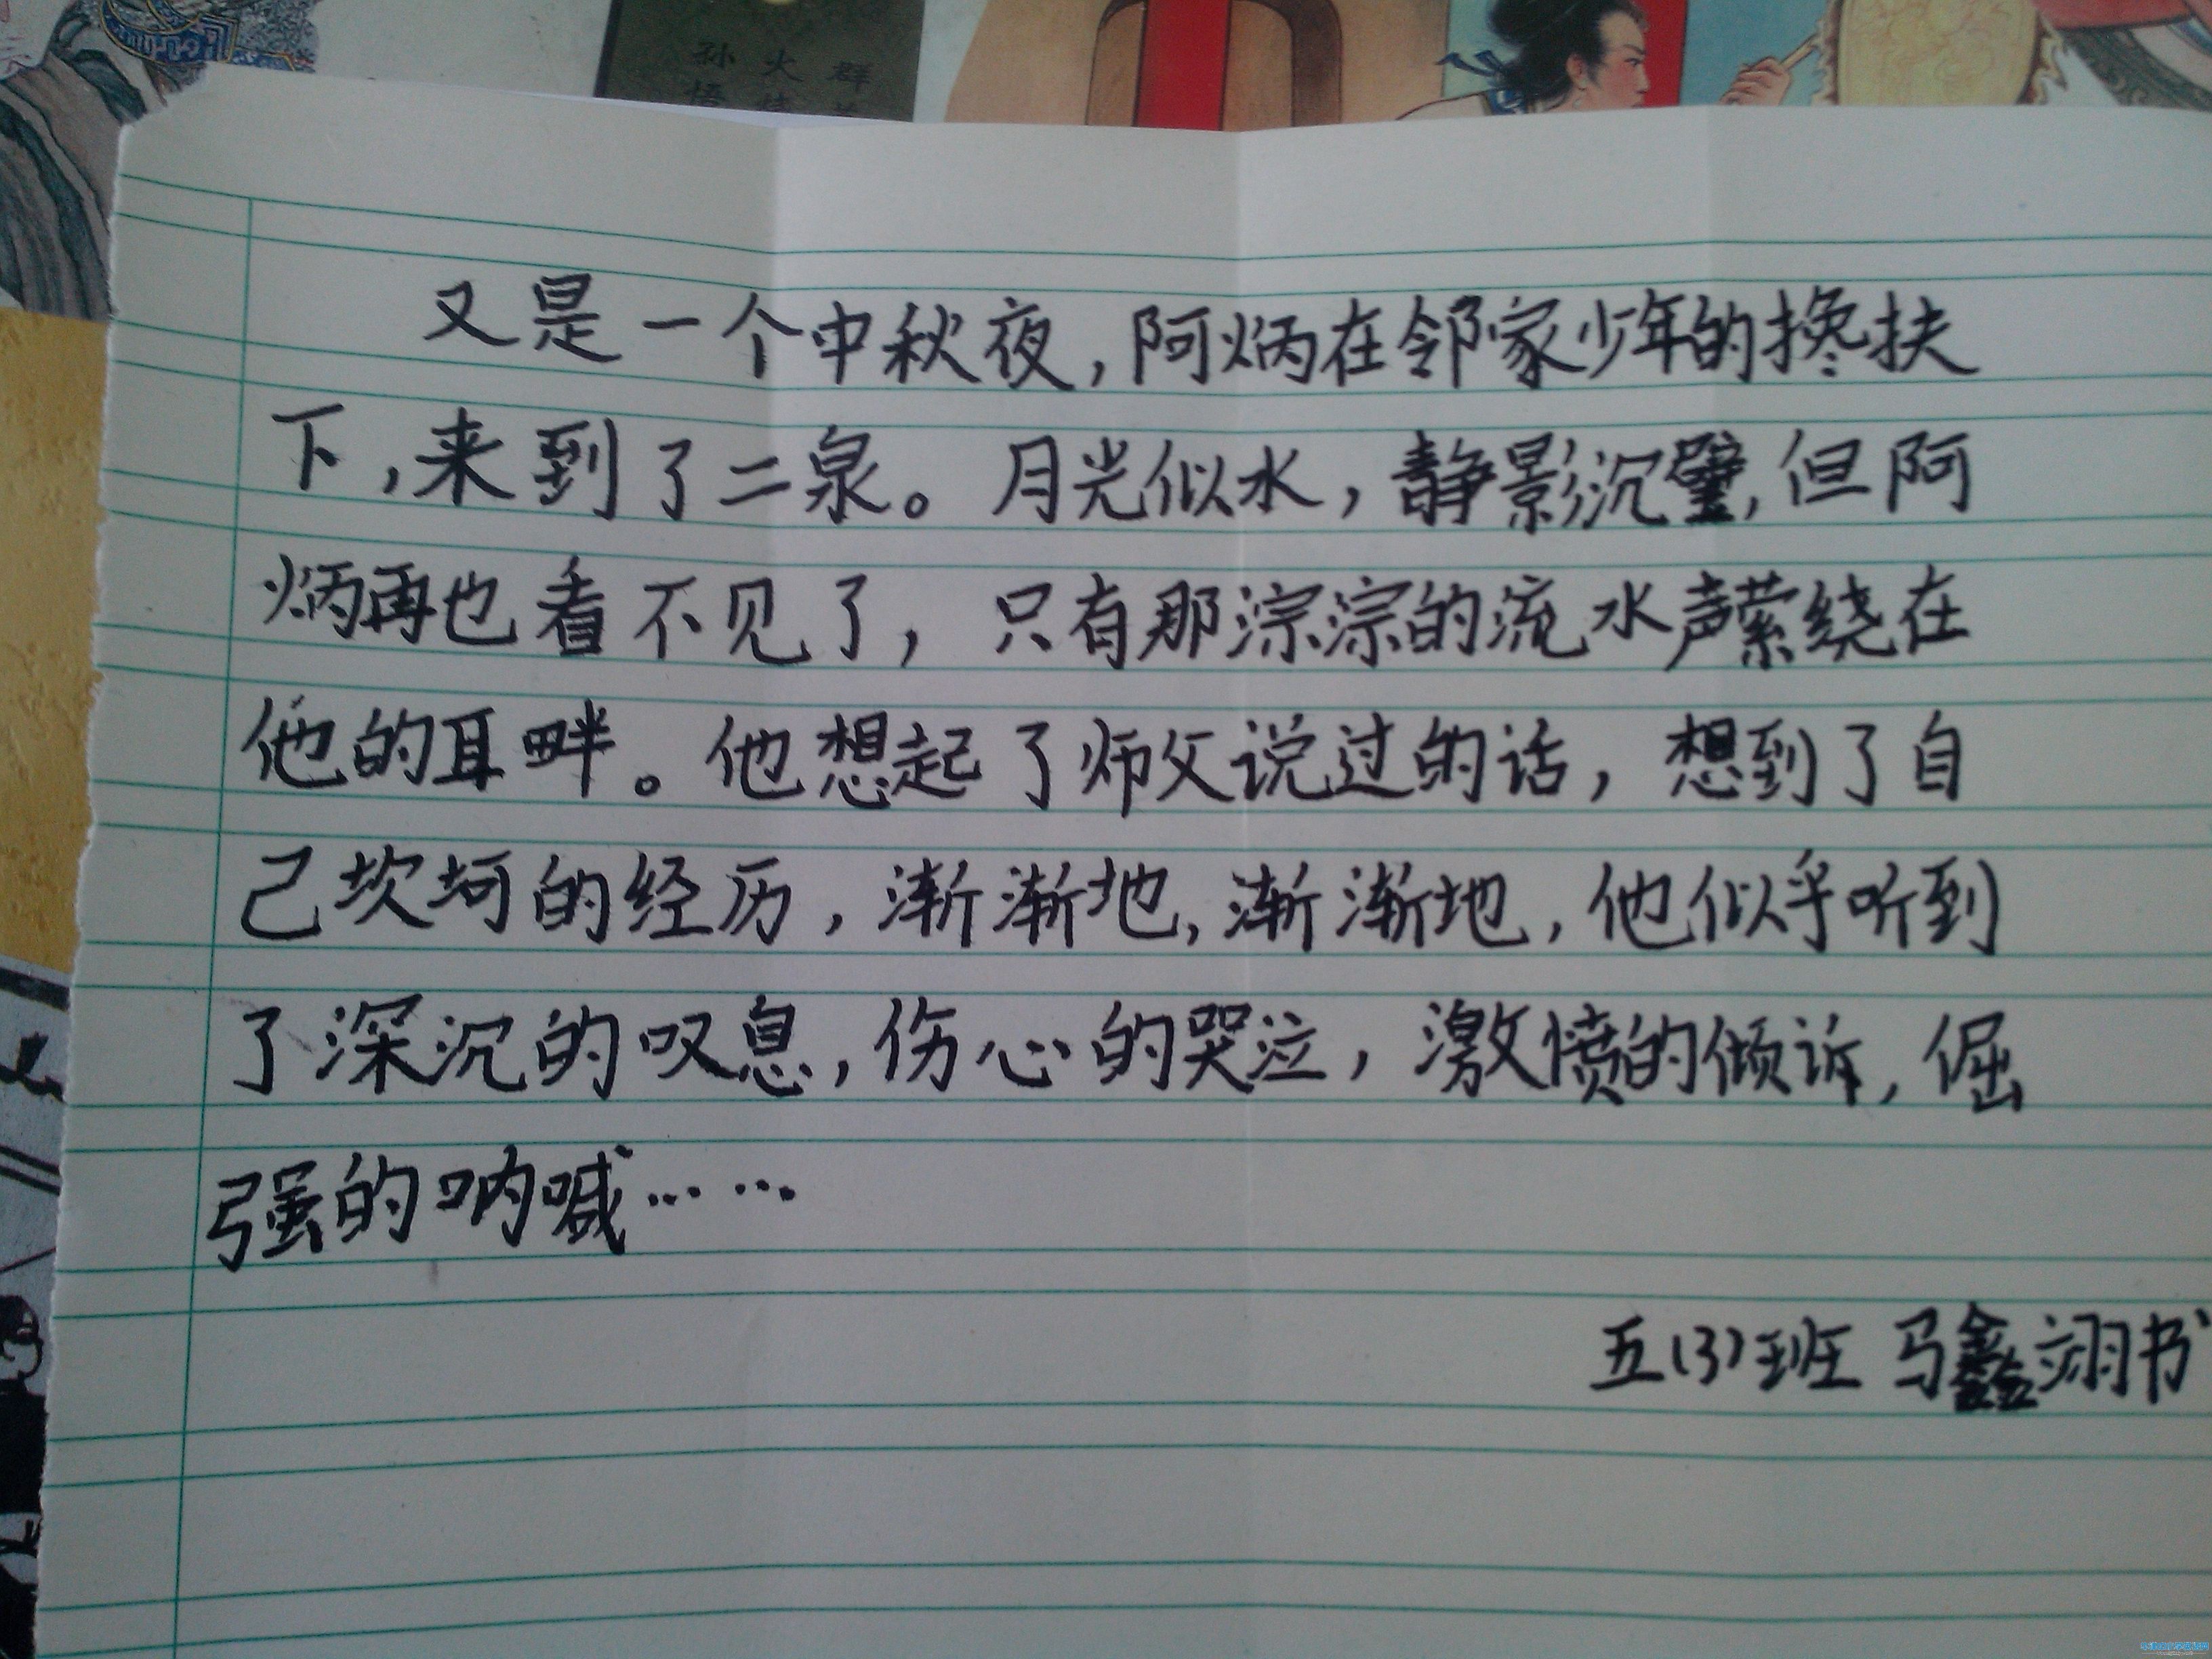 孙 火 群
悟
又是一个中秋夜，阿炳在邻家少年的搀扶
下，来到了二泉。月光似水，静影沉璧，但阿
炳再也看不见了，只有那淙淙的流水声萦绕在
他的耳畔。他想起了师父说过的话，想到了自
己坎坷的经历，渐渐地，渐渐地，他似乎听到
了深沉的叹息，伤心的哭泣，激愤的倾诉，倔
强的呐喊……
五(3)班 马鑫翊书